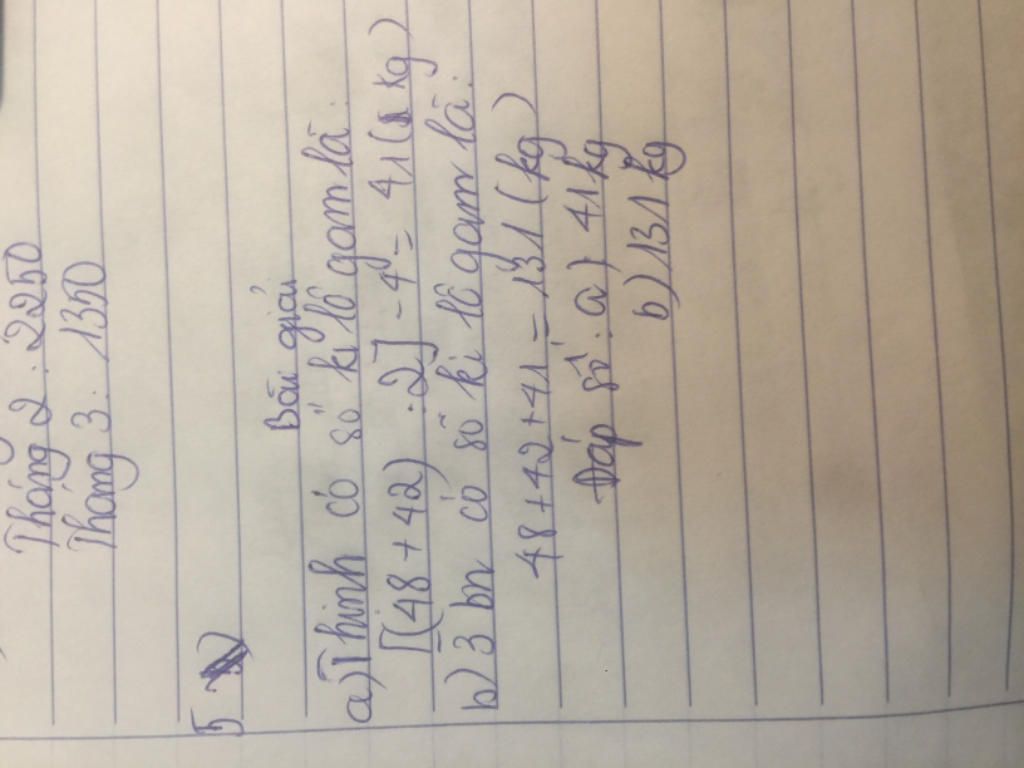 Tháng 2 : 2250
Tháng 3 : 1350
5
Bài giải
a) Thinh có số ki lô gam là:
[(48 + 42) : 2] - 4 = 41 (kg)
b) 3 bn có số ki lô gam là:
48 + 42 + 41 = 131 (kg)
Đáp số: a) 41 kg
b) 131 kg